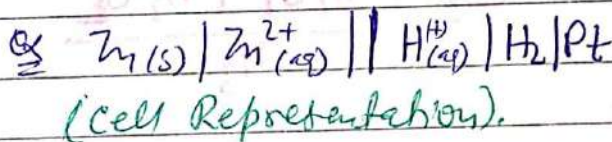 Q Zn(s) | Zn²⁺(aq) || H⁽⁺⁾(aq) | H₂ | Pt
(Cell Representation).